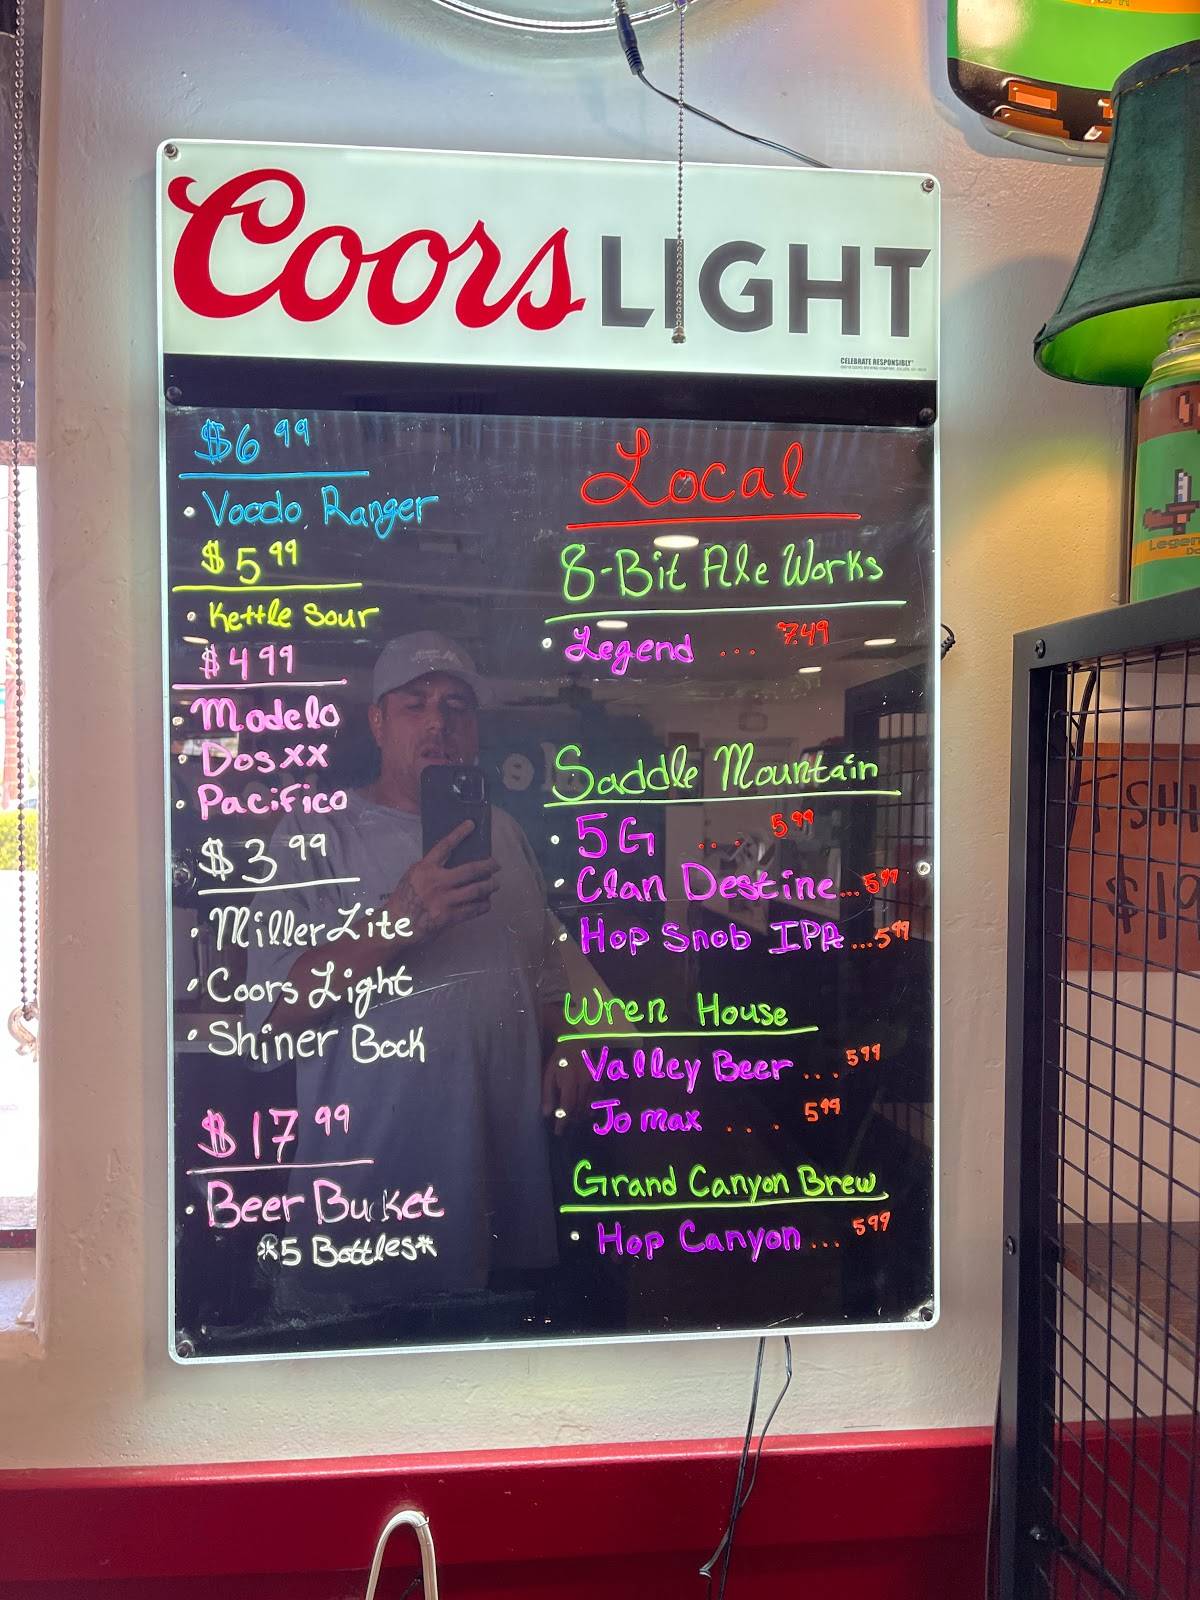 Coors LIGHT
CELEBRATE RESPONSIBLY
$6 99
• Voodo Ranger
$5 99
• Kettle Sour
$4 99
• Modelo
• Dosxx
• Pacifico
$3 99
• Miller Lite
• Coors Light
• Shiner Bock
$17 99
• Beer Bucket
*5 Bottles*
Local
8-Bit Ale Works
• Legend ... 7.49
Saddle Mountain
• 5G ... 5 99
• Clan Destine... 5 99
• Hop Snob IPA ... 5 99
Wren House
• Valley Beer ... 5 99
• Jomax .... 5 99
Grand Canyon Brew
• Hop Canyon ... 5 99